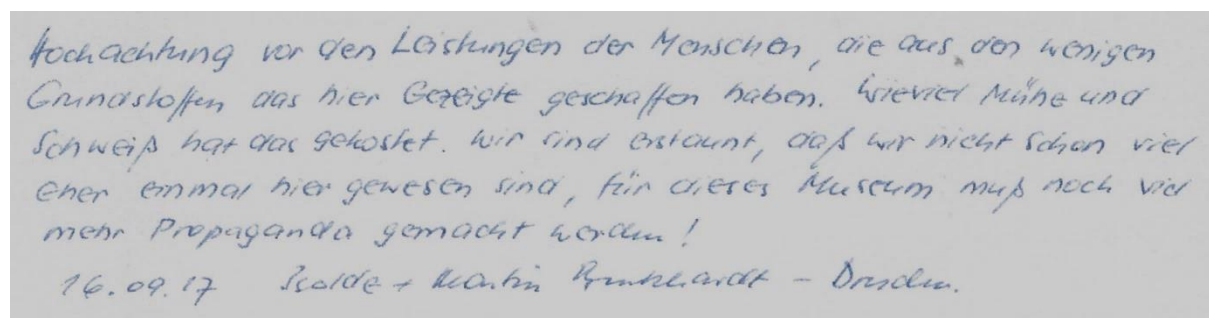 Hochachtung vor den Leistungen der Menschen, die aus den wenigen
Grundstoffen das hier Gezeigte geschaffen haben. Wieviel Mühe und
Schweiß hat das gekostet. Wir sind erstaunt, daß wir nicht schon viel
eher einmal hier gewesen sind, für dieses Museum muß noch viel
mehr Propaganda gemacht werden!
16.09.17 Isolde + Martin - Dresden.